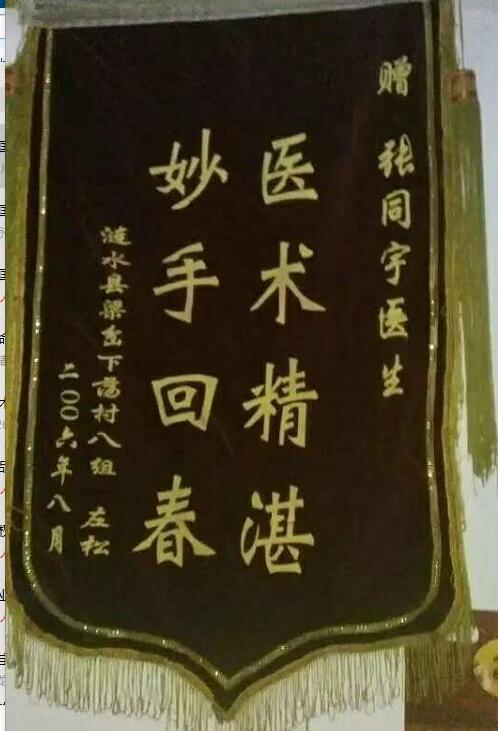 赠 张同宇医生
医术精湛
妙手回春
涟水县梁岔下荡村八组 左松
二00六年八月